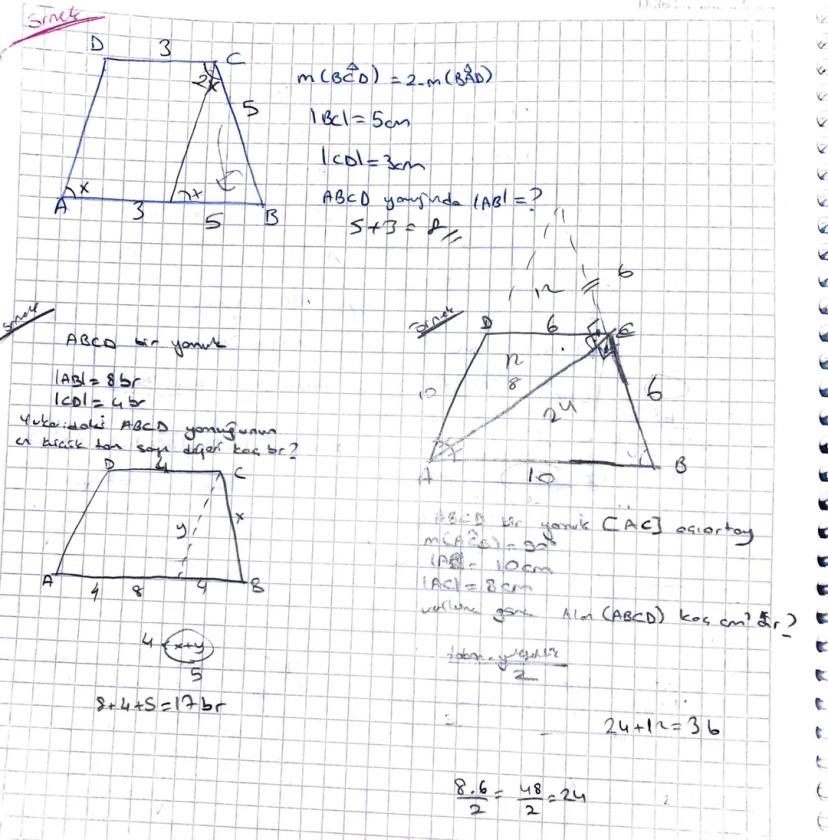 örnek
D 3 C
2x
5
x
x
A 3 5 B
m(BĈD) = 2.m(BÂD)
|BC| = 5cm
|CD| = 3cm
ABCD yamuğunda |AB| = ?
5+3 = 8
örnek
ABCD bir yamuk
|AB| = 8br
|CD| = 4br
Yukarıdaki ABCD yamuğunun
en küçük tam sayı değeri kaç br?
D 4 C
y
x
A 4 8 4 B
4 < x+y
5
8+4+5 = 17 br
örnek
12
6
D 6 C
12
10
8
24
6
A 10 B
ABCD bir yamuk [AC] açıortay
10cm
|AC| = 8cm
göre Alan(ABCD) kaç cm² dir?
2
=
24+12 = 36
8.6/2 = 48/2 = 24